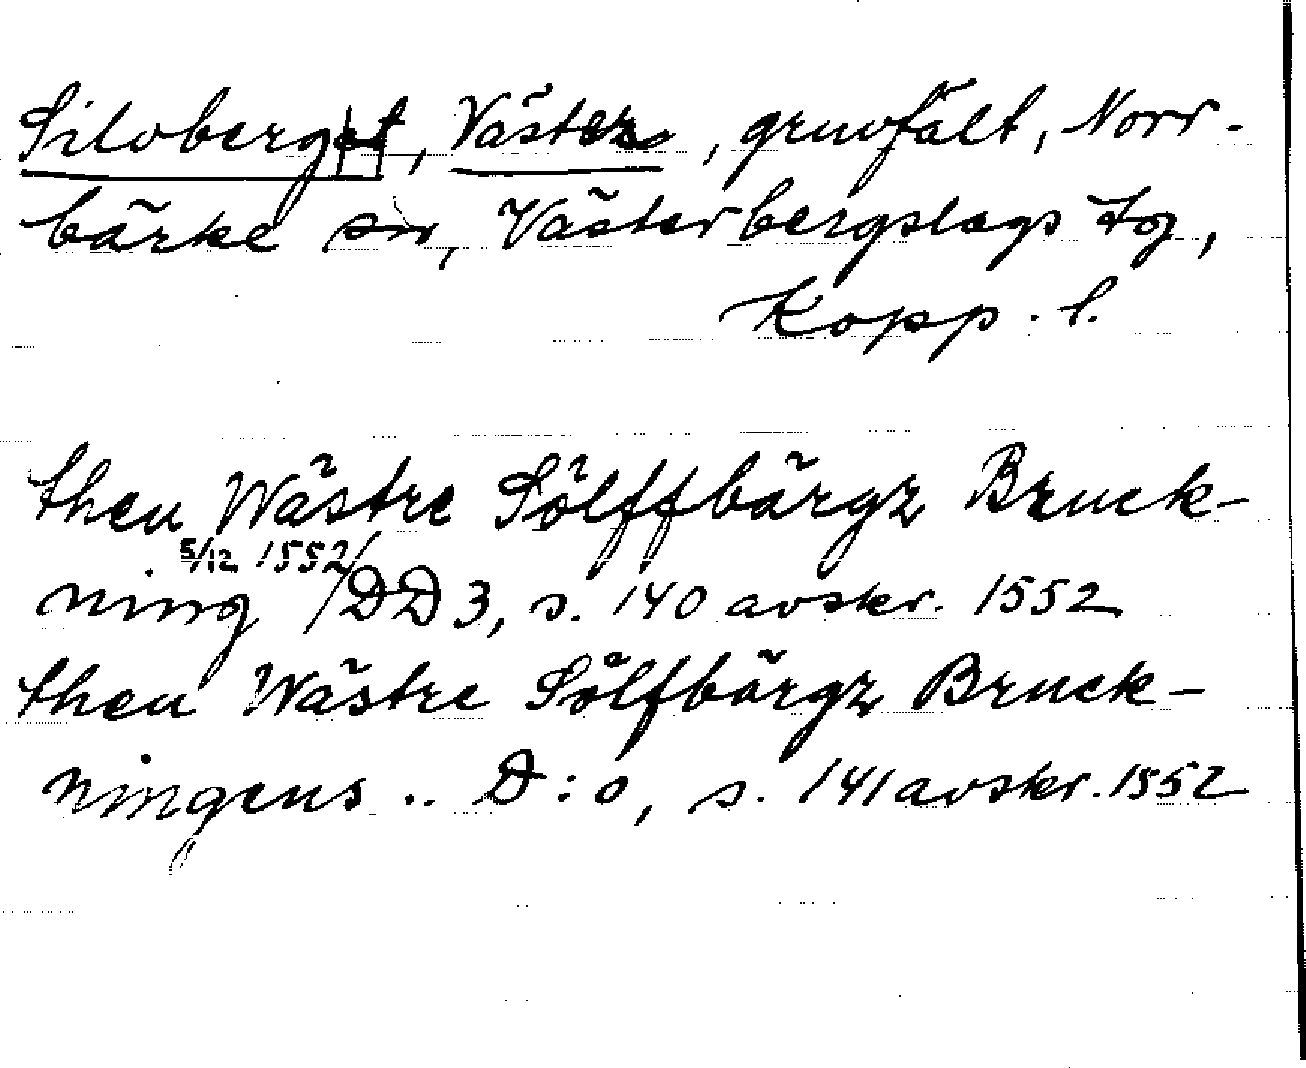 Silvberget, Västra, gruvfält, Norr-
bärke sn, Västerbergslags tg,
Kopp. l.
then Wästre Sölffbärgz Bruck-
5/12 1552/
ning /DD 3, s. 140 avskr. 1552
then Wästre Sölfbärgz Bruck-
ningens .. D:o, s. 141 avskr. 1552